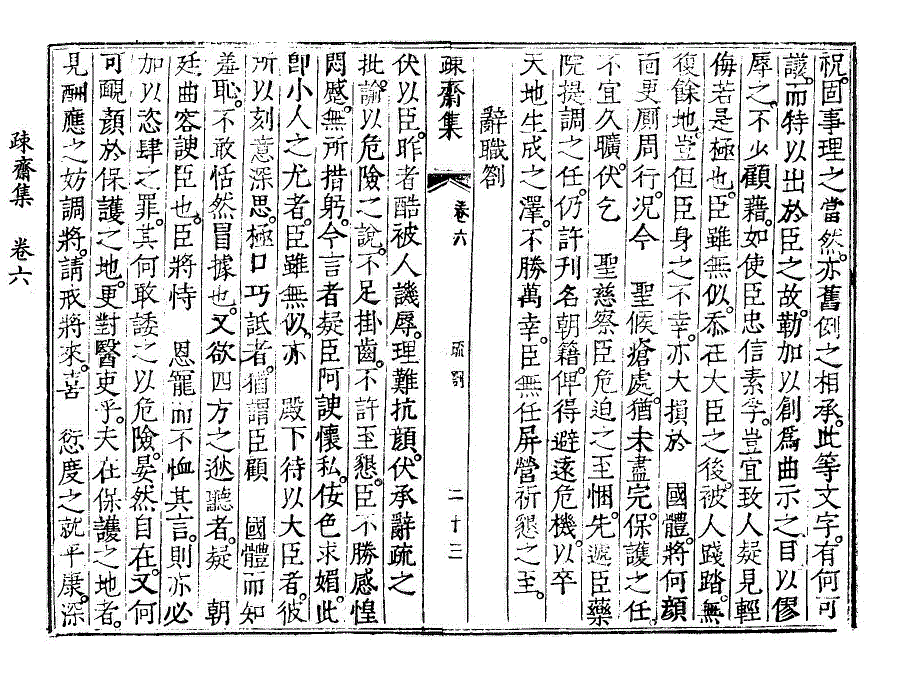 祝。固事理之當然。亦舊例之相承。此等文字。有何可
議。而特以出於臣之故。勒加以創爲曲示之目以僇
辱之。不少顧藉。如使臣忠信素孚。豈宜致人疑見輕
侮若是極也。臣雖無似。忝在大臣之後。被人踐踏。無
復餘地。豈但臣身之不幸。亦大損於 國體。將何顔
面更廁周行。况今 聖候瘡處。猶未盡完。保護之任。
不宜久曠。伏乞 聖慈察臣危迫之至悃。先遞臣藥
院提調之任。仍許刊名朝籍。俾得避遠危機。以卒
天地生成之澤。不勝萬幸。臣無任屏營祈懇之至。
辭職劄
疎齋集 卷六 疏劄 二十三
伏以臣。昨者酷被人譏辱。理難抗顔。伏承辭疏之
批。諭以危險之說。不足掛齒。不許至懇。臣不勝感惶
悶蹙。無所措躬。今言者疑臣阿諛懷私。佞色求媚。此
卽小人之尤者。臣雖無似。亦 殿下待以大臣者。彼
所以刻意深思。極口巧詆者。猶謂臣顧 國體而知
羞恥。不敢恬然冒據也。又欲四方之逖聽者。疑 朝
廷曲容諛臣也。臣將恃 恩寵而不恤其言。則亦必
加以恣肆之罪。其何敢諉之以危險。晏然自在。又何
可靦顔於保護之地。更對醫吏乎。夫在保護之地者。
見酬應之妨調將。請戒將來。喜 愆度之就平康。深
疎齋集 卷六